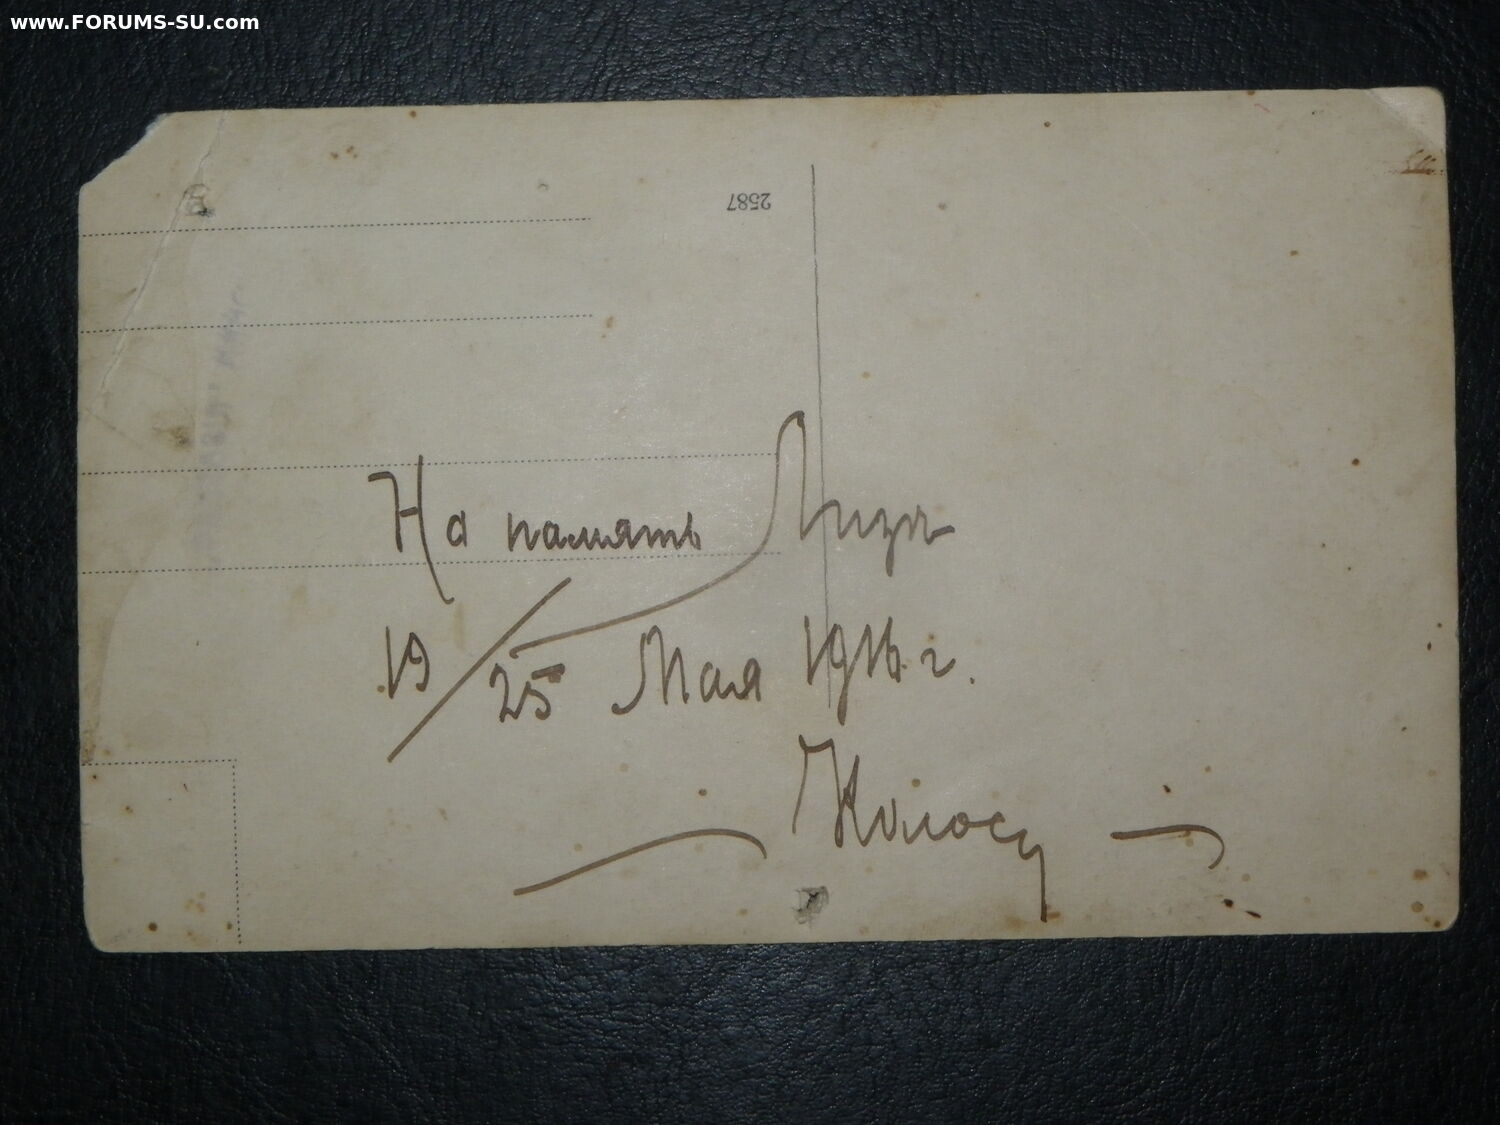 www.FORUMS-SU.com
2587
На память Лиза
19/25 Мая 1916 г.